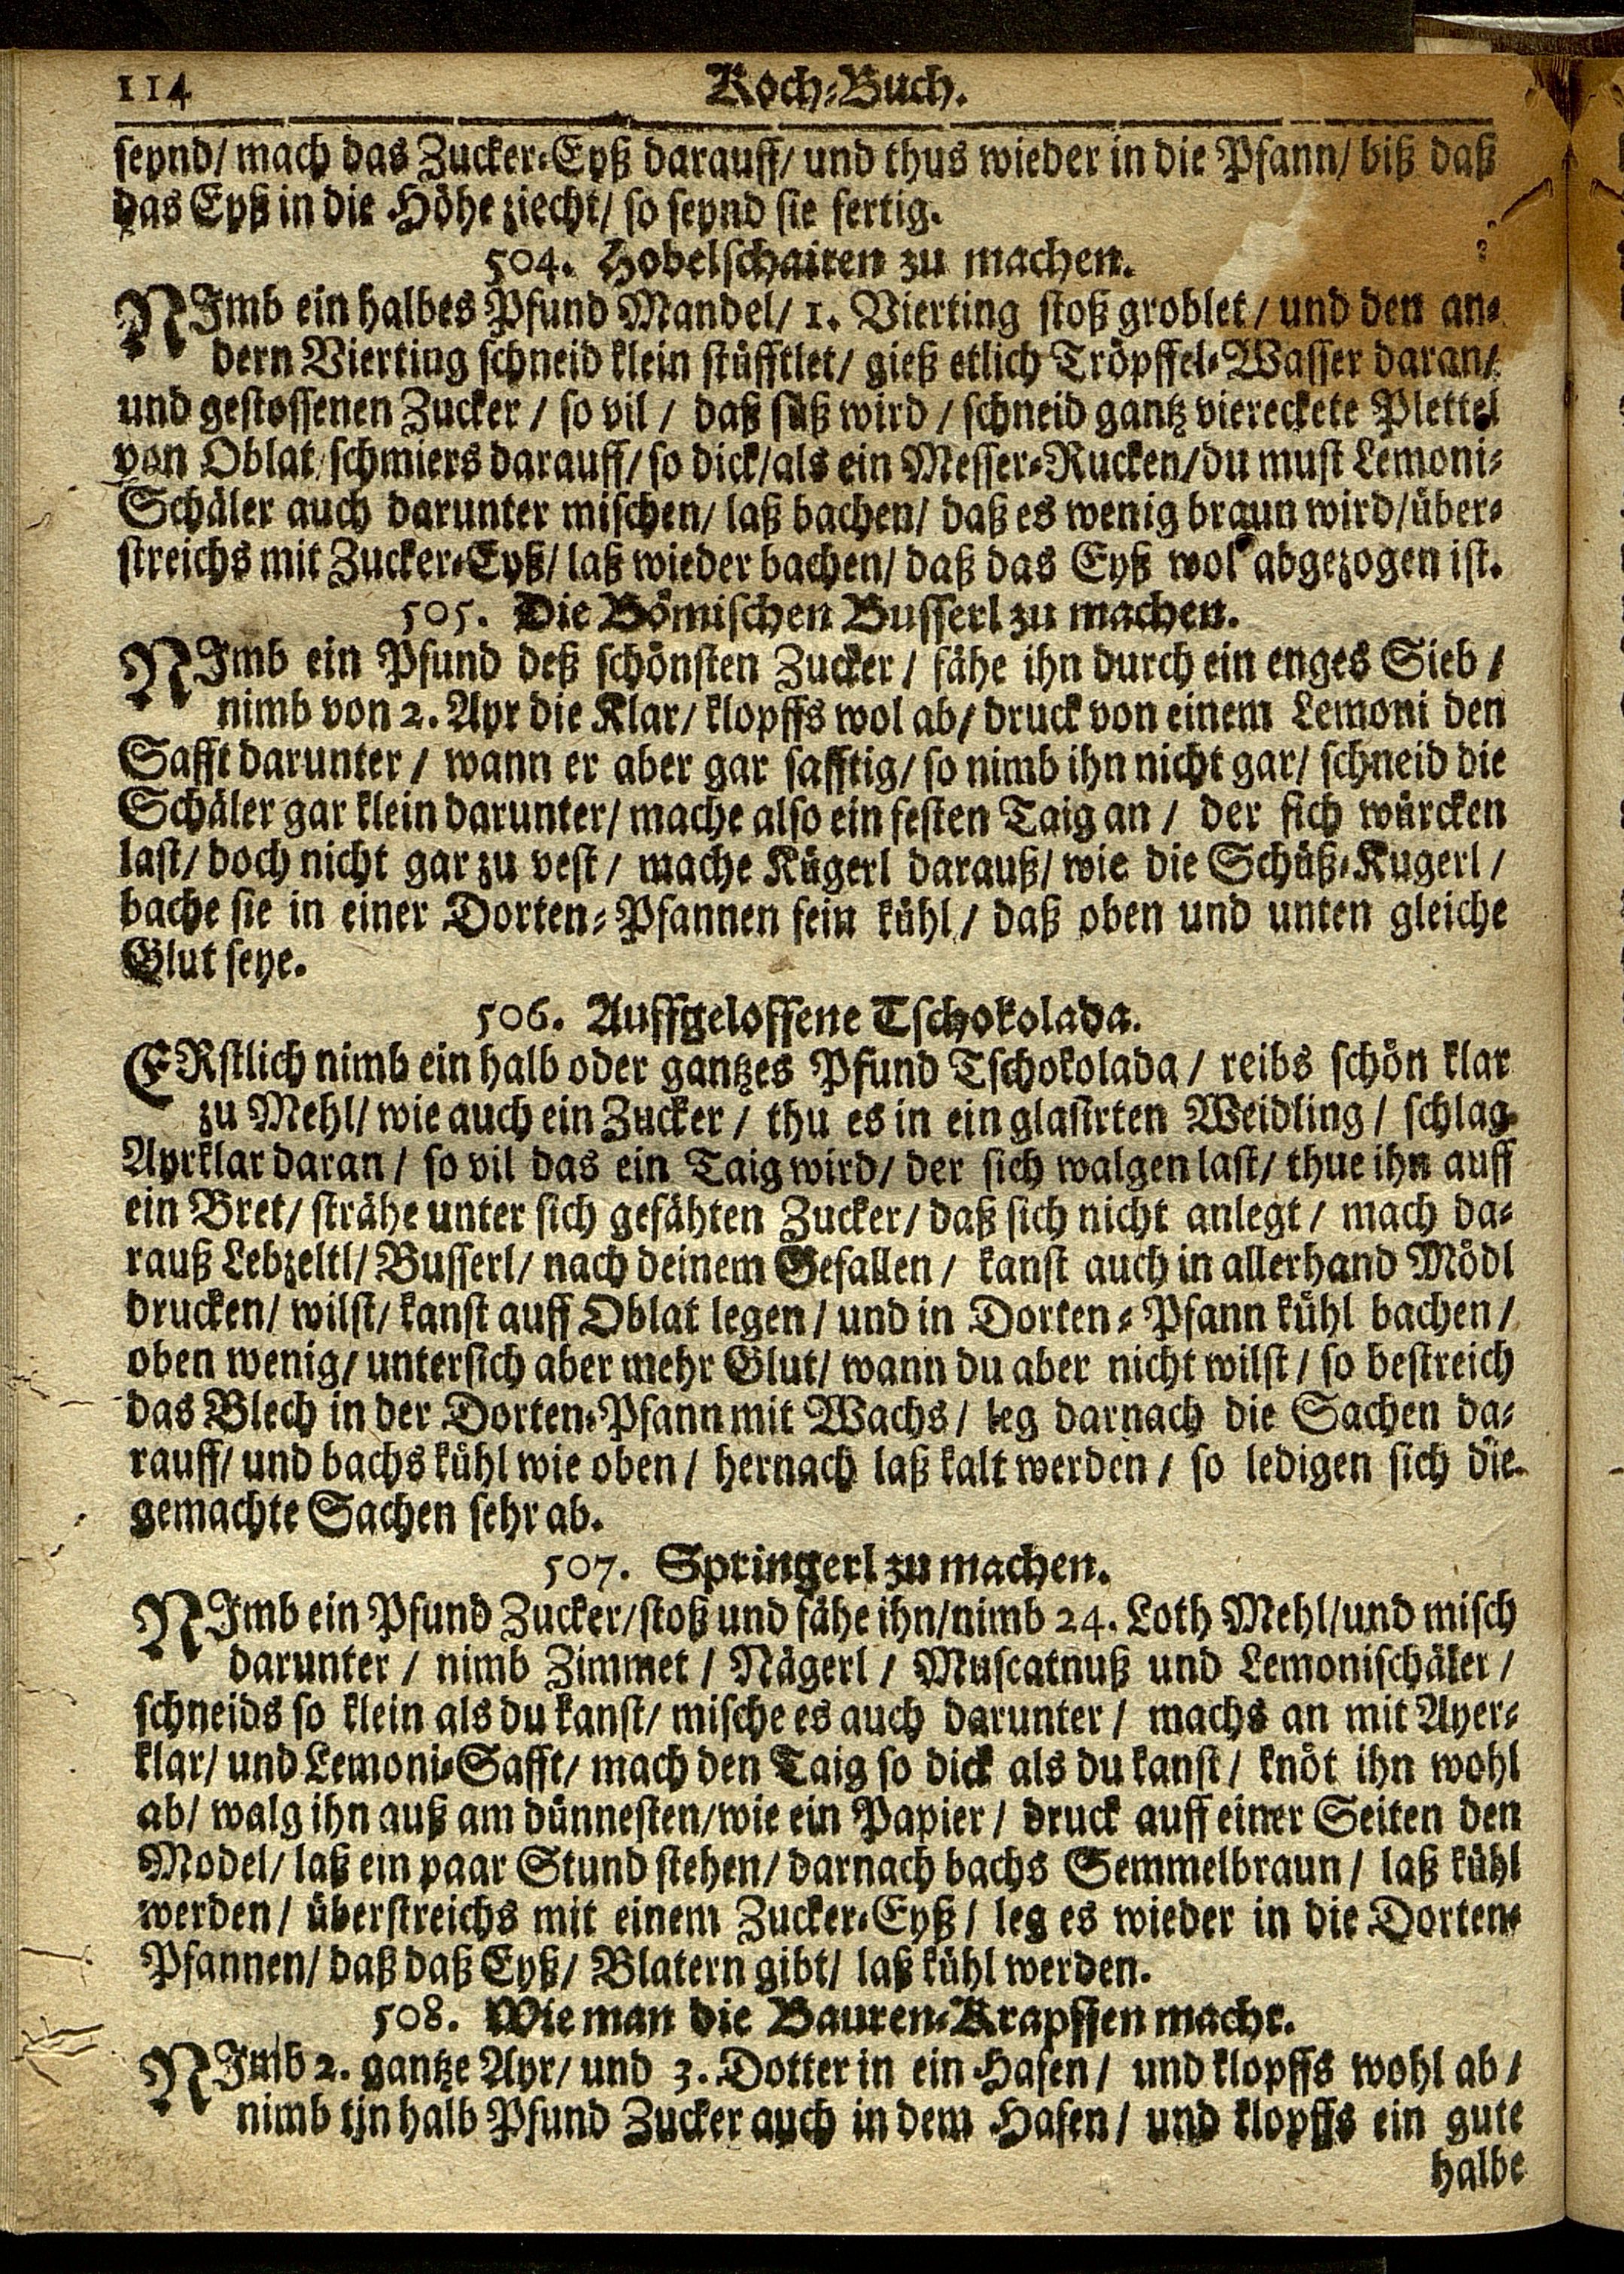 114 Koch-Buch.
seynd/ mach das Zucker-Eyß darauff/ und thus wieder in die Pfann/ biß daß
das Eyß in die Höhe ziecht/ so seynd sie fertig.
504. Hobelschaiten zu machen.
NImb ein halbes Pfund Mandel/ 1. Vierting stoß groblet/ und den an-
dern Vierting schneid klein stüfftlet/ gieß etlich Tröpffel-Wasser daran/
und gestossenen Zucker / so vil / daß süß wird / schneid gantz viereckete Plettel
von Oblat/ schmiers darauff/ so dick/ als ein Messer-Rucken/ du must Lemoni-
Schäler auch darunter mischen/ laß bachen/ daß es wenig braun wird/ über-
streichs mit Zucker-Eyß/ laß wieder bachen/ daß das Eyß wol abgezogen ist.
505. Die Bömischen Busserl zu machen.
NImb ein Pfund deß schönsten Zucker / fähe ihn durch ein enges Sieb /
nimb von 2. Ayr die Klar/ klopffs wol ab/ druck von einem Lemoni den
Safft darunter / wann er aber gar safftig/ so nimb ihn nicht gar/ schneid die
Schäler gar klein darunter/ mache also ein festen Taig an / der sich würcken
last/ doch nicht gar zu vest / mache Kügerl darauß/ wie die Schüß-Kugerl /
bache sie in einer Dorten-Pfannen fein kühl / daß oben und unten gleiche
Glut seye.
506. Auffgeloffene Tschokolada.
ERstlich nimb ein halb oder gantzes Pfund Tschokolada / reibs schön klar
zu Mehl/ wie auch ein Zucker / thu es in ein glasirten Weidling / schlag
Ayrklar daran / so vil das ein Taig wird/ der sich walgen last/ thue ihn auff
ein Bret/ strähe unter sich gefähten Zucker/ daß sich nicht anlegt / mach da-
rauß Lebzeltl/ Busserl/ nach deinem Gefallen / kanst auch in allerhand Mödl
drucken/ wilst/ kanst auff Oblat legen / und in Dorten-Pfann kühl bachen /
oben wenig/ untersich aber mehr Glut/ wann du aber nicht wilst / so bestreich
das Blech in der Dorten-Pfann mit Wachs / leg darnach die Sachen da-
rauff/ und bachs kühl wie oben / hernach laß kalt werden / so ledigen sich die
gemachte Sachen sehr ab.
507. Springerl zu machen.
NImb ein Pfund Zucker/ stoß und fähe ihn/ nimb 24. Loth Mehl/ und misch
darunter / nimb Zimmet / Nägerl / Muscatnuß und Lemonischäler /
schneids so klein als du kanst/ mische es auch darunter / machs an mit Ayer-
klar/ und Lemoni-Safft/ mach den Taig so dick als du kanst / knöt ihn wohl
ab/ walg ihn auß am dünnesten/ wie ein Papier / druck auff einer Seiten den
Model/ laß ein paar Stund stehen/ darnach bachs Semmelbraun / laß kühl
werden / überstreichs mit einem Zucker-Eyß / leg es wieder in die Dorten-
Pfannen/ daß daß Eyß/ Blatern gibt/ laß kühl werden.
508. Wie man die Bauren-Krapffen macht.
NImb 2. gantze Ayr/ und 3. Dotter in ein Hafen / und klopffs wohl ab /
nimb ein halb Pfund Zucker auch in dem Hafen / und klopffs ein gute
halbe